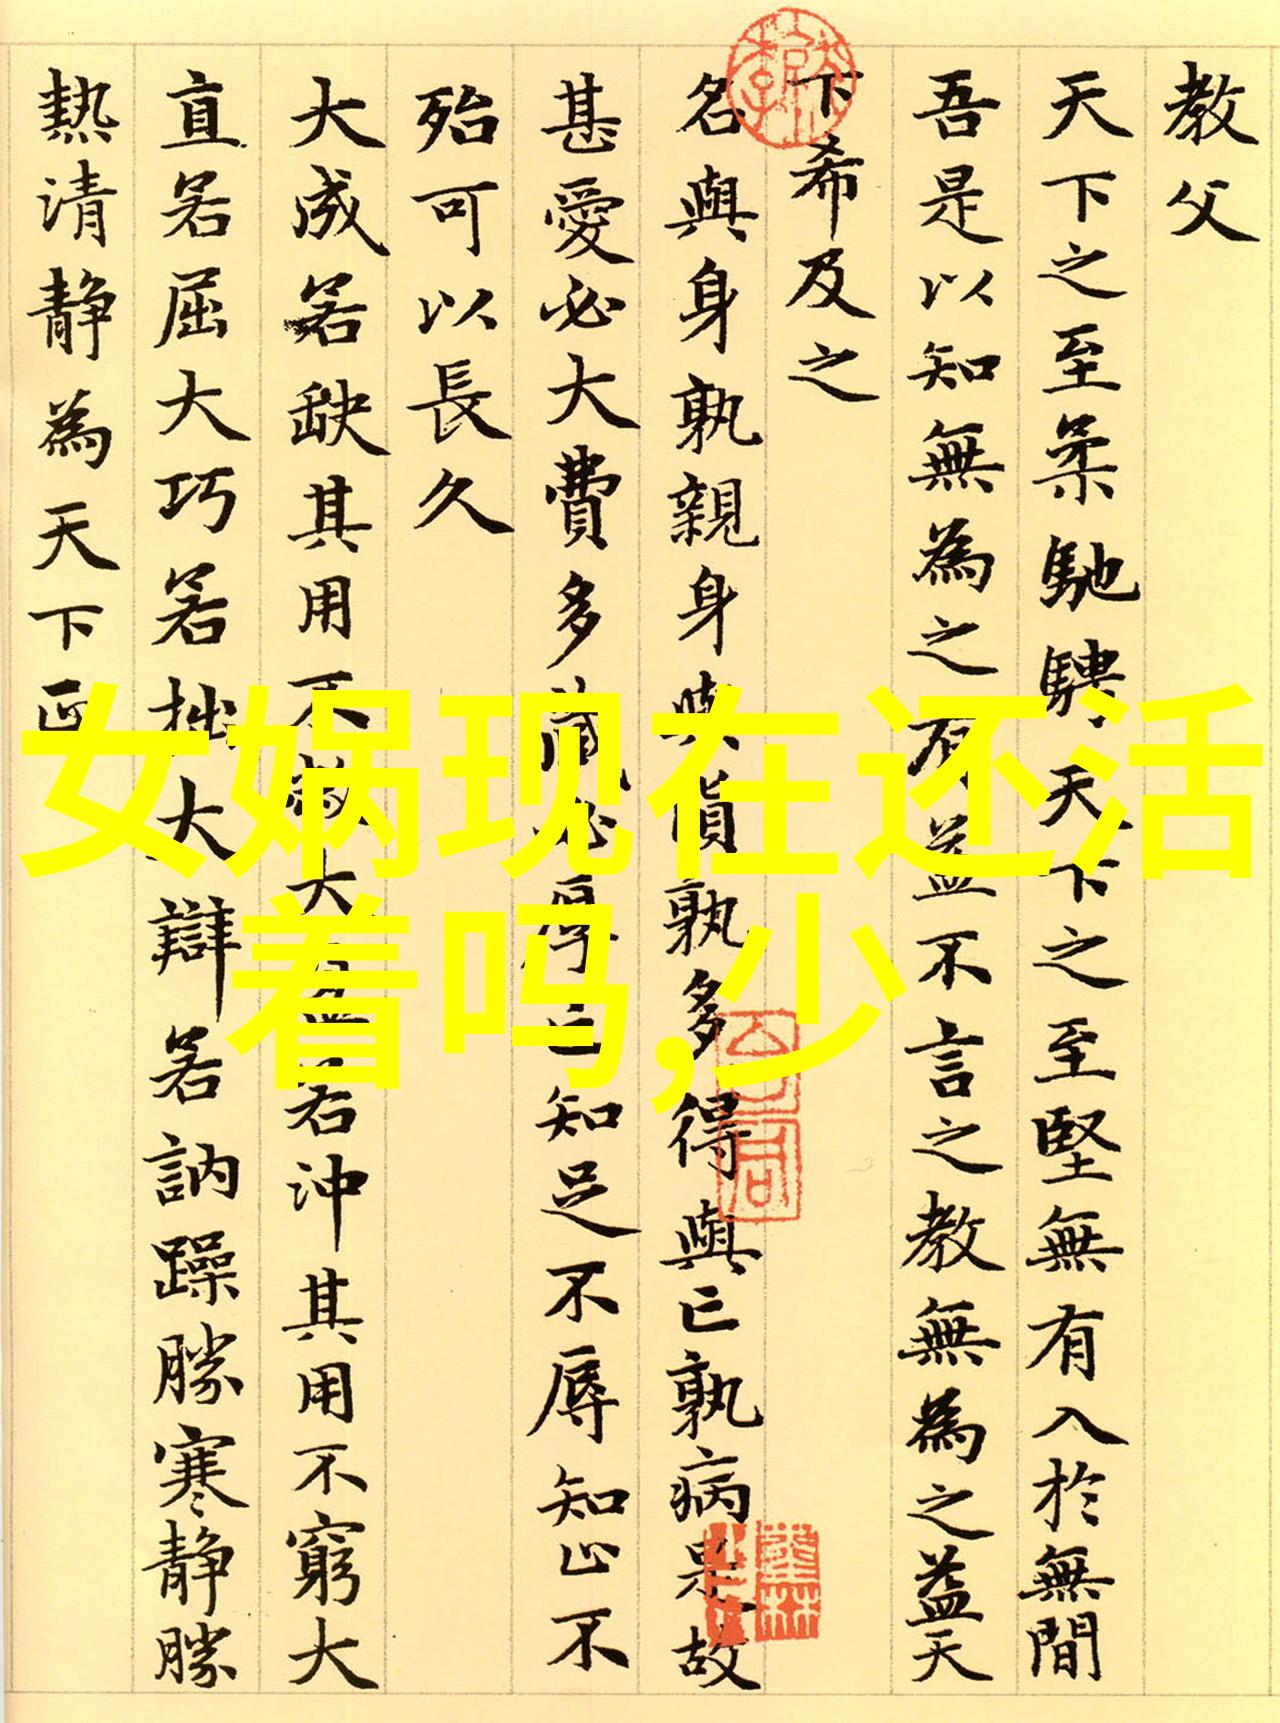 教父
天下之至柔馳騁天下之至堅無有入於無間
吾是以知無為之有益不言之教無為之益天
下希及之
名與身孰親身與貨孰多得與亡孰病是故
甚愛必大費多藏必厚亡知足不辱知止不
殆可以長久
大成若缺其用不弊大盈若沖其用不窮大
直若屈大巧若拙大辯若訥躁勝寒靜勝
熱清靜為天下正
女娲现在还活
着吗,少